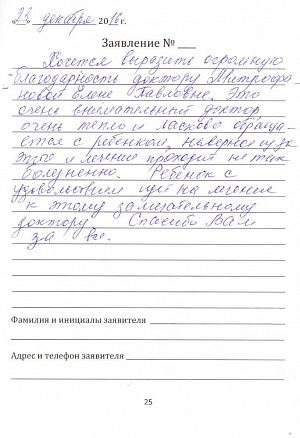 22 декабря 2016 г.
Заявление № ___
Хочется выразить огромную
благодарность доктору Митрофа-
новой Елене Павловне. Это
очень внимательный доктор
очень тепло и ласково обраща-
ется с ребенком, наверное из за
этого и лечение проходит не так
болезненно. Ребенок с
удовольствием идет на лечение
к этому замечательному
доктору Спасибо Вам
за все.
Фамилия и инициалы заявителя
Адрес и телефон заявителя
25